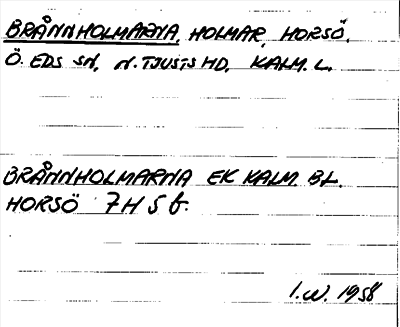 BRÅNNHOLMARNA, HOLMAR, HORSÖ,
Ö. EDS SN, N. TJUSTS HD, KALM. L.
BRÅNNHOLMARNA EK KALM. BL.
HORSÖ 7H 5 b.
I.W. 1958